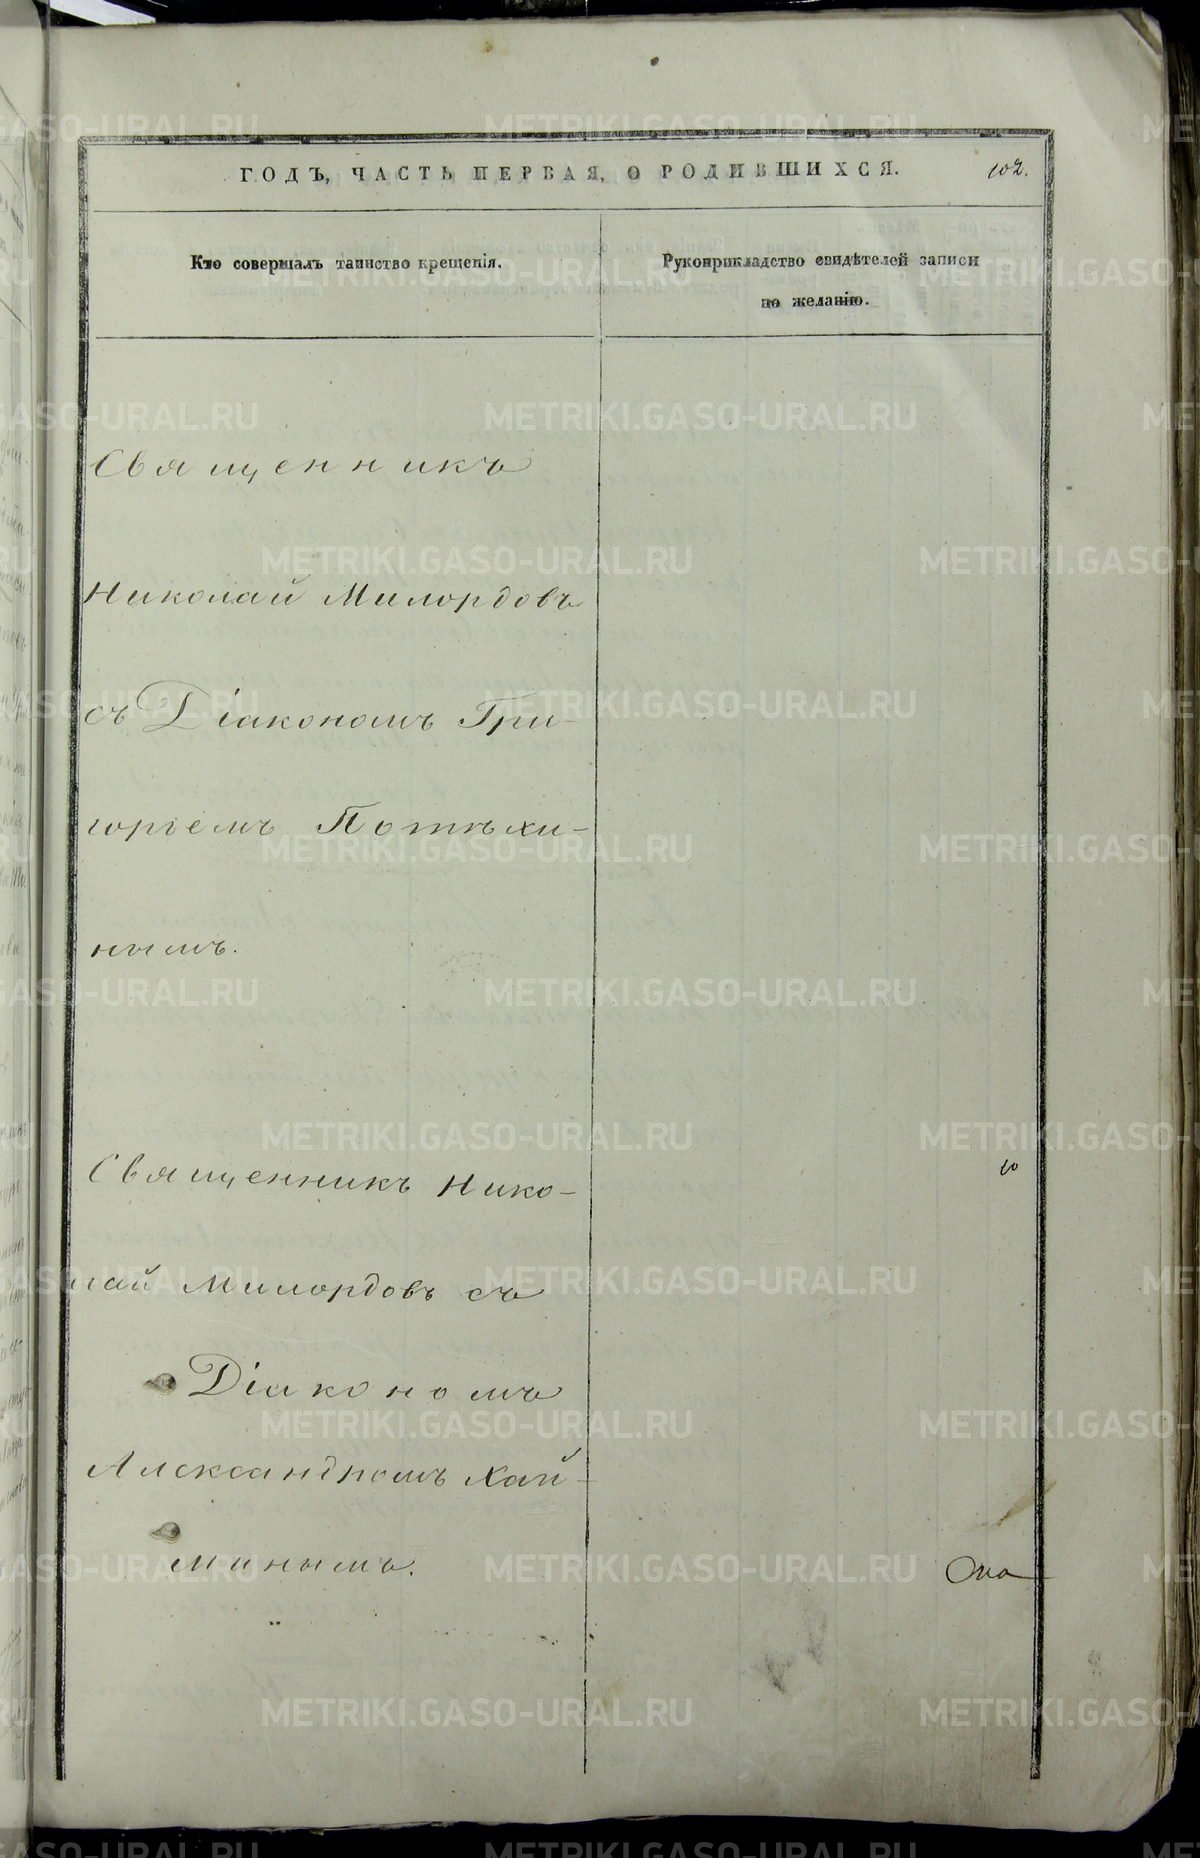 ГОДЪ, ЧАСТЬ ПЕРВАЯ, О РОДИВШИХСЯ. 102.
Кто совершалъ таинство крещенія.
Рукоприкладство свидѣтелей записи
по желанію.
Священникъ
Николай Милордовъ
съ Діакономъ Гри-
горіемъ Потѣхи-
нымъ.
Священникъ Нико-
лай Милордовъ съ
Діакономъ
Александромъ Хай-
минымъ.
METRIKI.GASO-URAL.RU